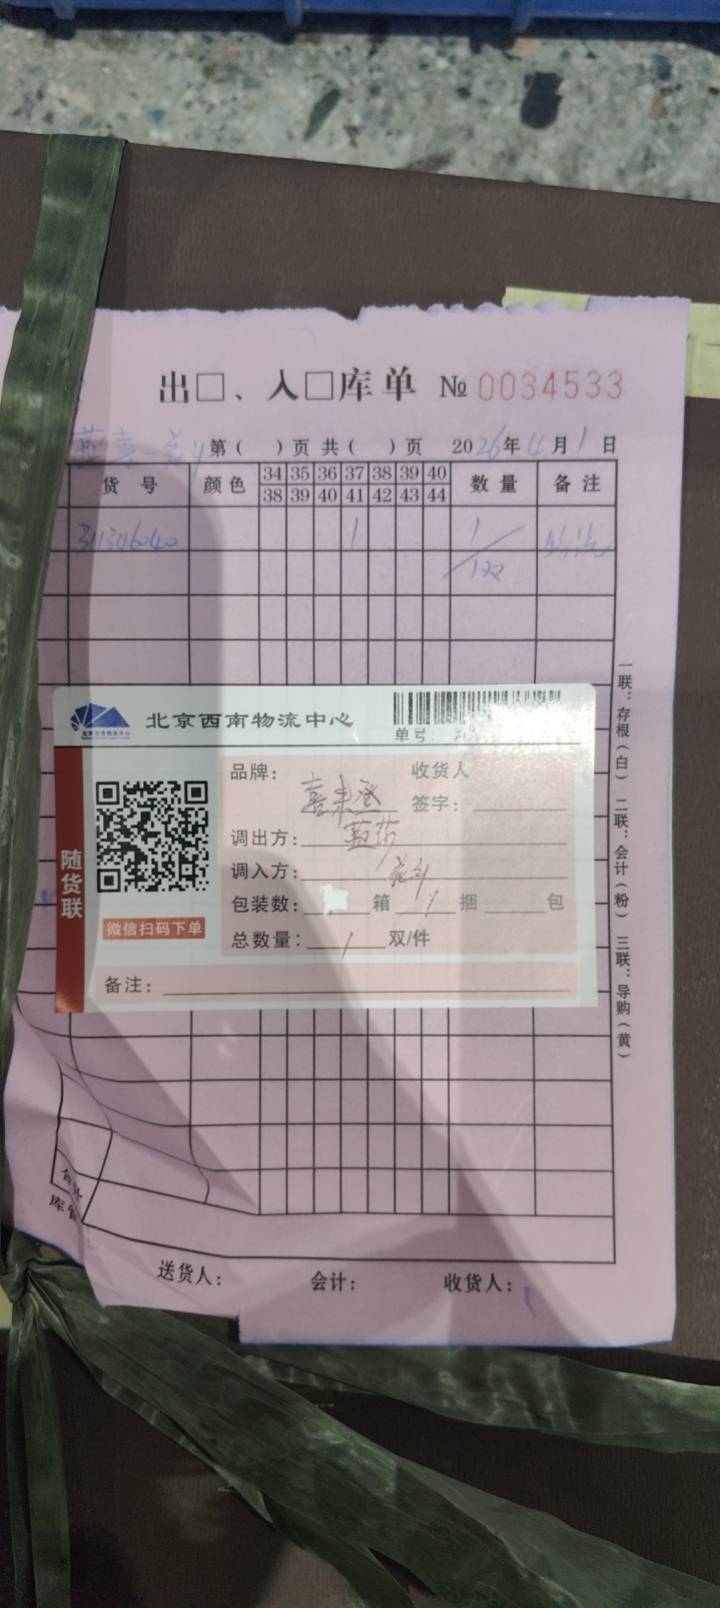 出□、入□库单 № 0034533
第（ ）页 共（ ）页 2026年4月1日
货号 颜色 34 35 36 37 38 39 40 数量 备注
38 39 40 41 42 43 44
311346040 1 1
一联：存根（白） 二联：会计（粉） 三联：导购（黄）
北京西南物流中心
单号：
随货联
微信扫码下单
品牌： 收货人
签字：
调出方：
调入方：
包装数： 箱 1 捆 包
总数量： 1 双/件
备注：
送货人： 会计： 收货人：